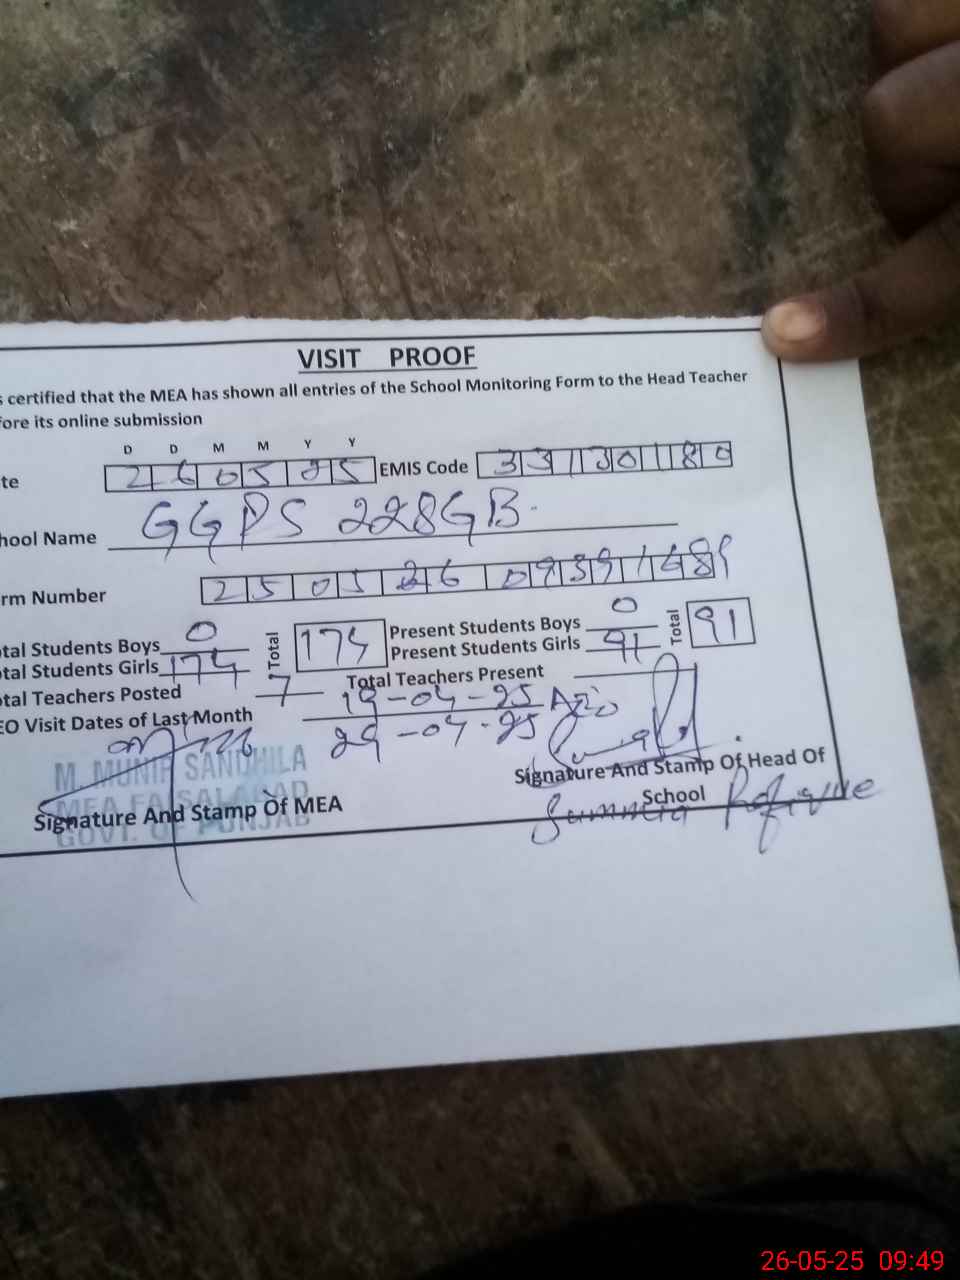 VISIT PROOF
s certified that the MEA has shown all entries of the School Monitoring Form to the Head Teacher
fore its online submission
D D M M Y Y
te 260525 EMIS Code 33130180
hool Name GGPS 228GB.
rm Number 250526 09391689
tal Students Boys 0 Total 174 Present Students Boys 0 Total 91
tal Students Girls 174 Present Students Girls 91
tal Teachers Posted 7 Total Teachers Present
EO Visit Dates of Last Month 19-04-25
29-04-25
M. MUNIR SANDHILA
MEA FAISALABAD
GOVT. OF PUNJAB
Signature And Stamp Of MEA
Signature And Stamp Of Head Of
School
26-05-25 09:49